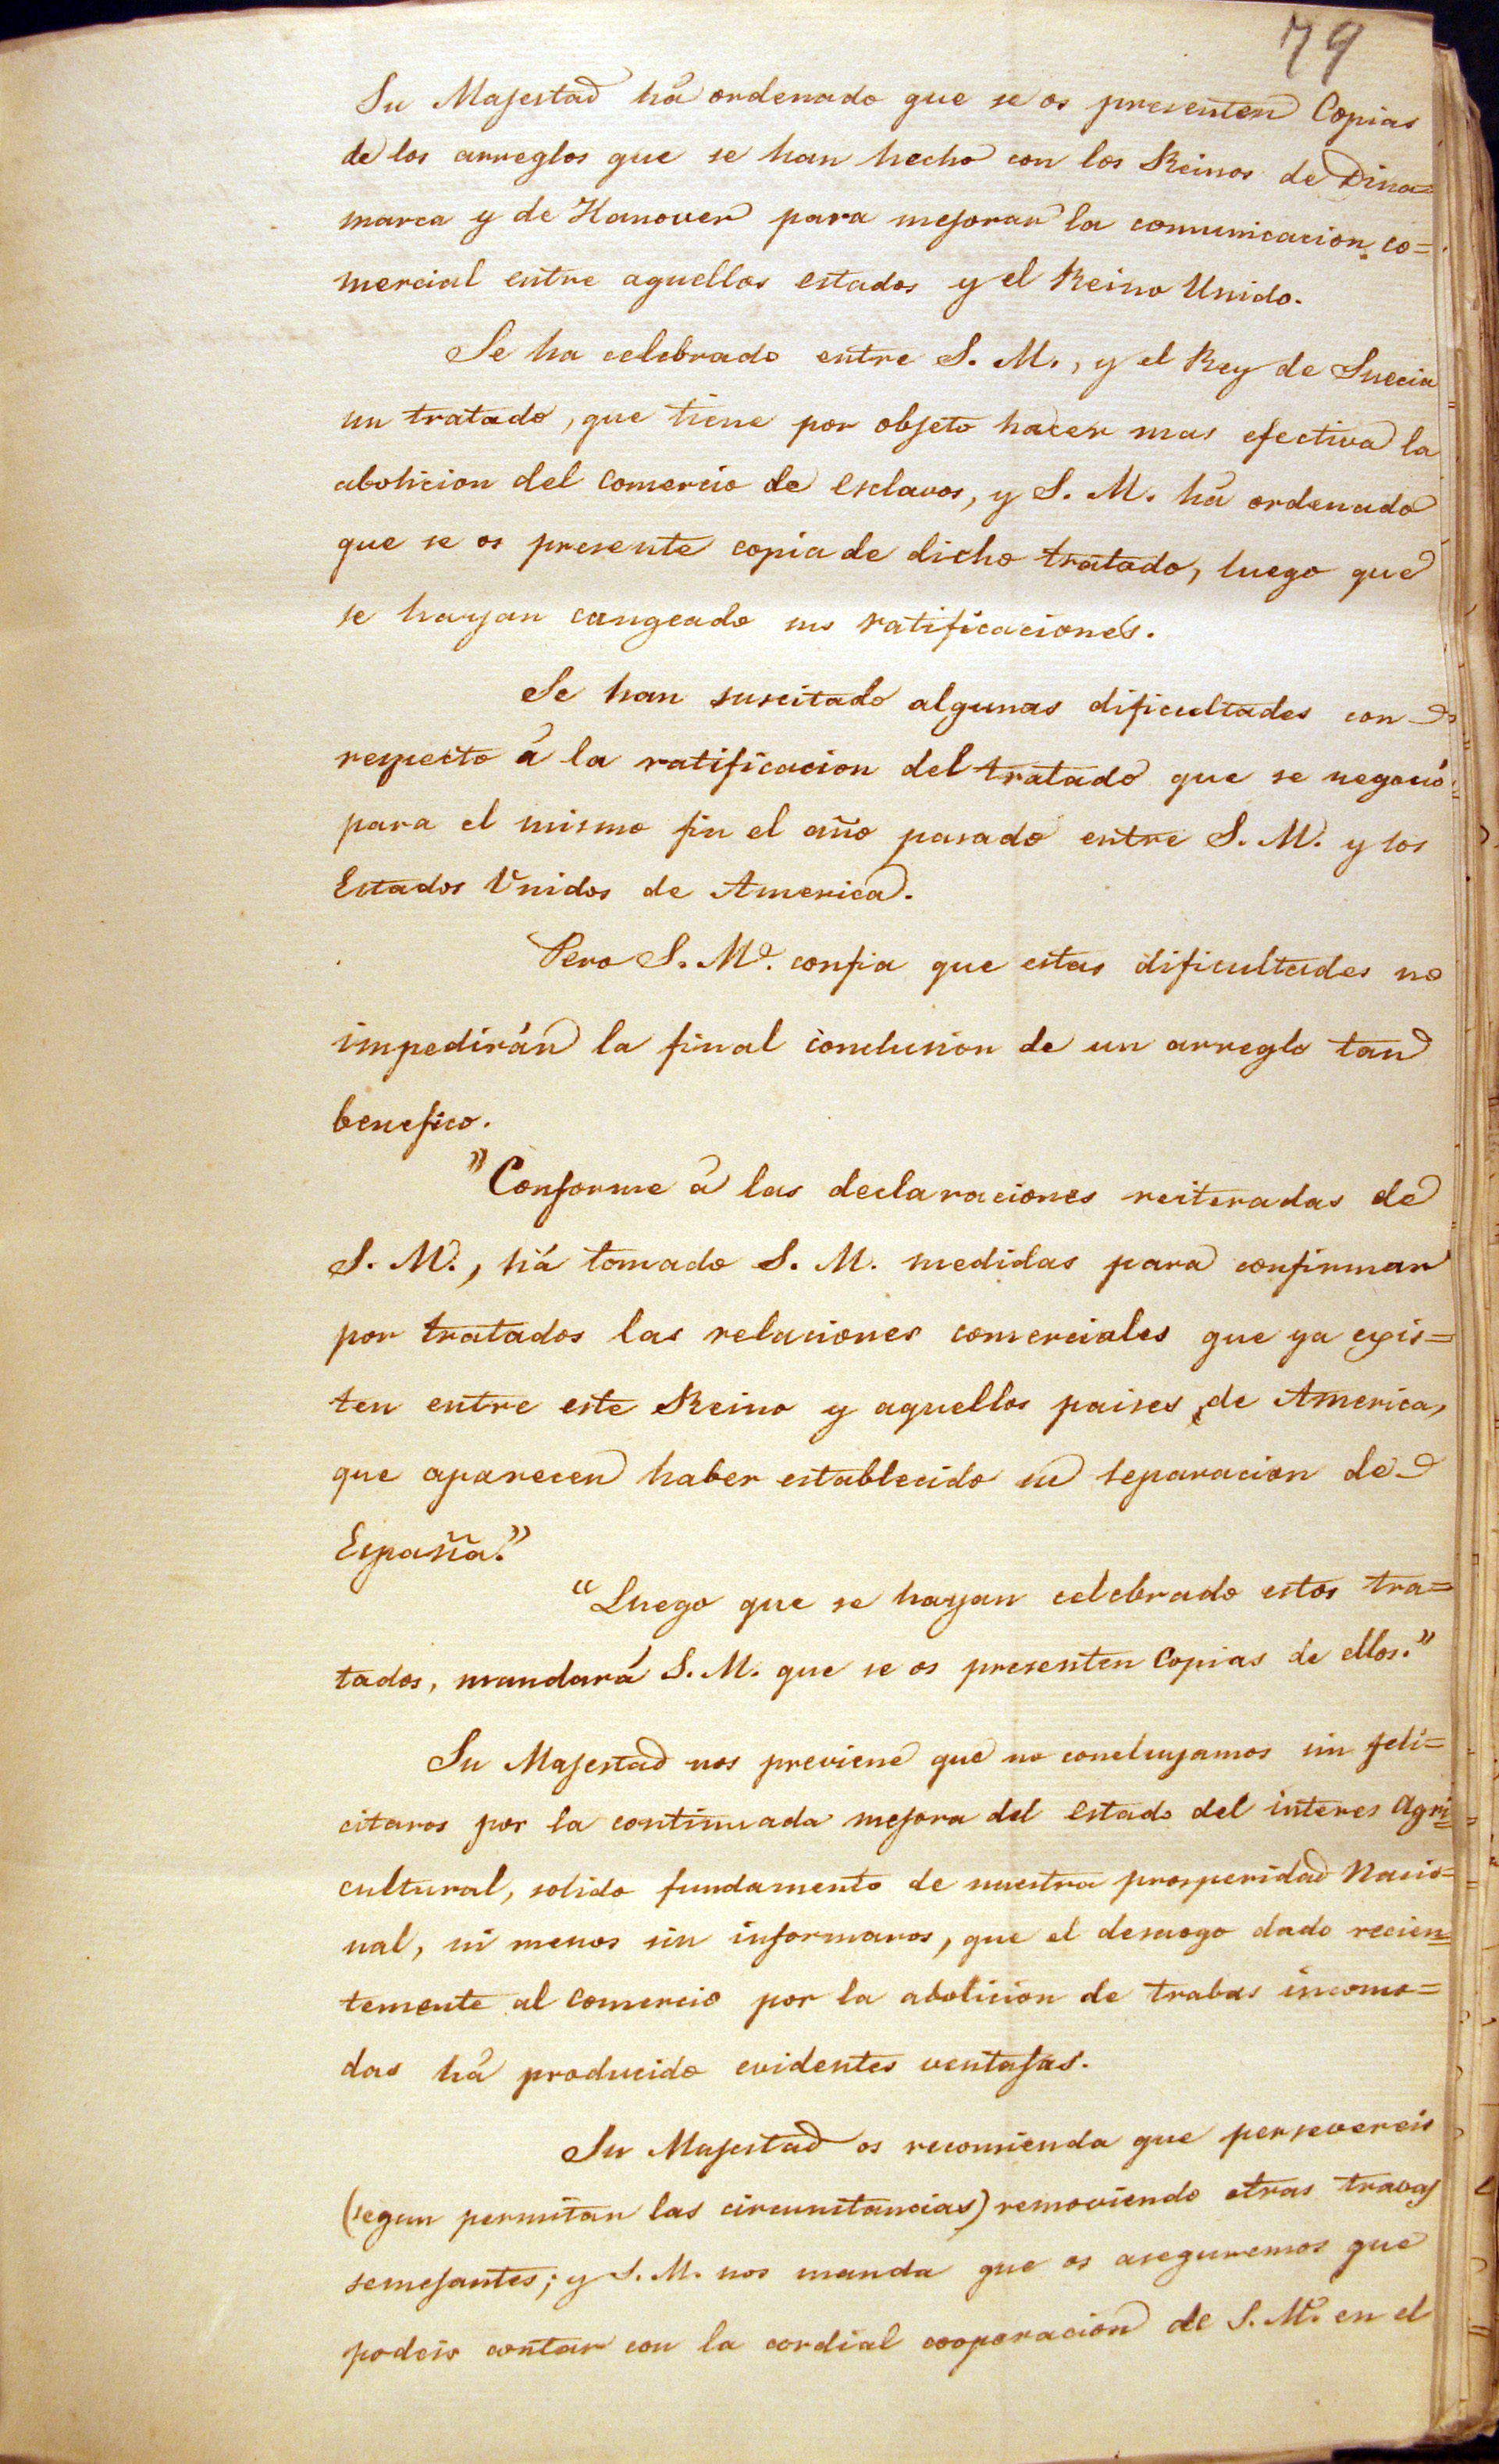 79
Su Majestad há ordenado que se os presenten Copias
de los arreglos que se han hecho con los Reinos de Dina=
marca y de Hanover para mejorar la comunicacion co=
mercial entre aquellos estados y el Reino Unido.
Se ha celebrado entre S. M., y el Rey de Suecia
un tratado, que tiene por objeto hacer mas efectiva la
abolicion del comercio de esclavos, y S. M. há ordenado
que se os presente copia de dicho tratado, luego que
se hayan cangeado sus ratificaciones.
Se han suscitado algunas dificultades con
respecto á la ratificacion del tratado que se negoció
para el mismo fin el año pasado entre S. M. y los
Estados Unidos de America.
Pero S. M.d confia que estas dificultades no
impedirán la final conclusion de un arreglo tan
benefico.
"Conforme á las declaraciones reiteradas de
S. M., há tomado S. M. medidas para confirmar
por tratados las relaciones comerciales que ya exis=
ten entre este Reino y aquellos paises de America,
que aparecen haber establecido su separacion de
España."
"Luego que se hayan celebrado estos tra=
tados, mandará S. M. que se os presenten Copias de ellos."
Su Majestad nos previene que no concluyamos sin feli=
citaros por la continuada mejora del estado del interes Agri=
cultural, solido fundamento de nuestra prosperidad Nacio=
nal, ni menos sin informaros, que el desaogo dado recien=
temente al comercio por la abolicion de trabas incomo=
das há producido evidentes ventajas.
Su Majestad os recomienda que persevereis
(segun permitan las circunstancias) removiendo otras travas
semejantes; y S. M. nos manda que os aseguremos que
podeis contar con la cordial cooparacion de S. M. en el